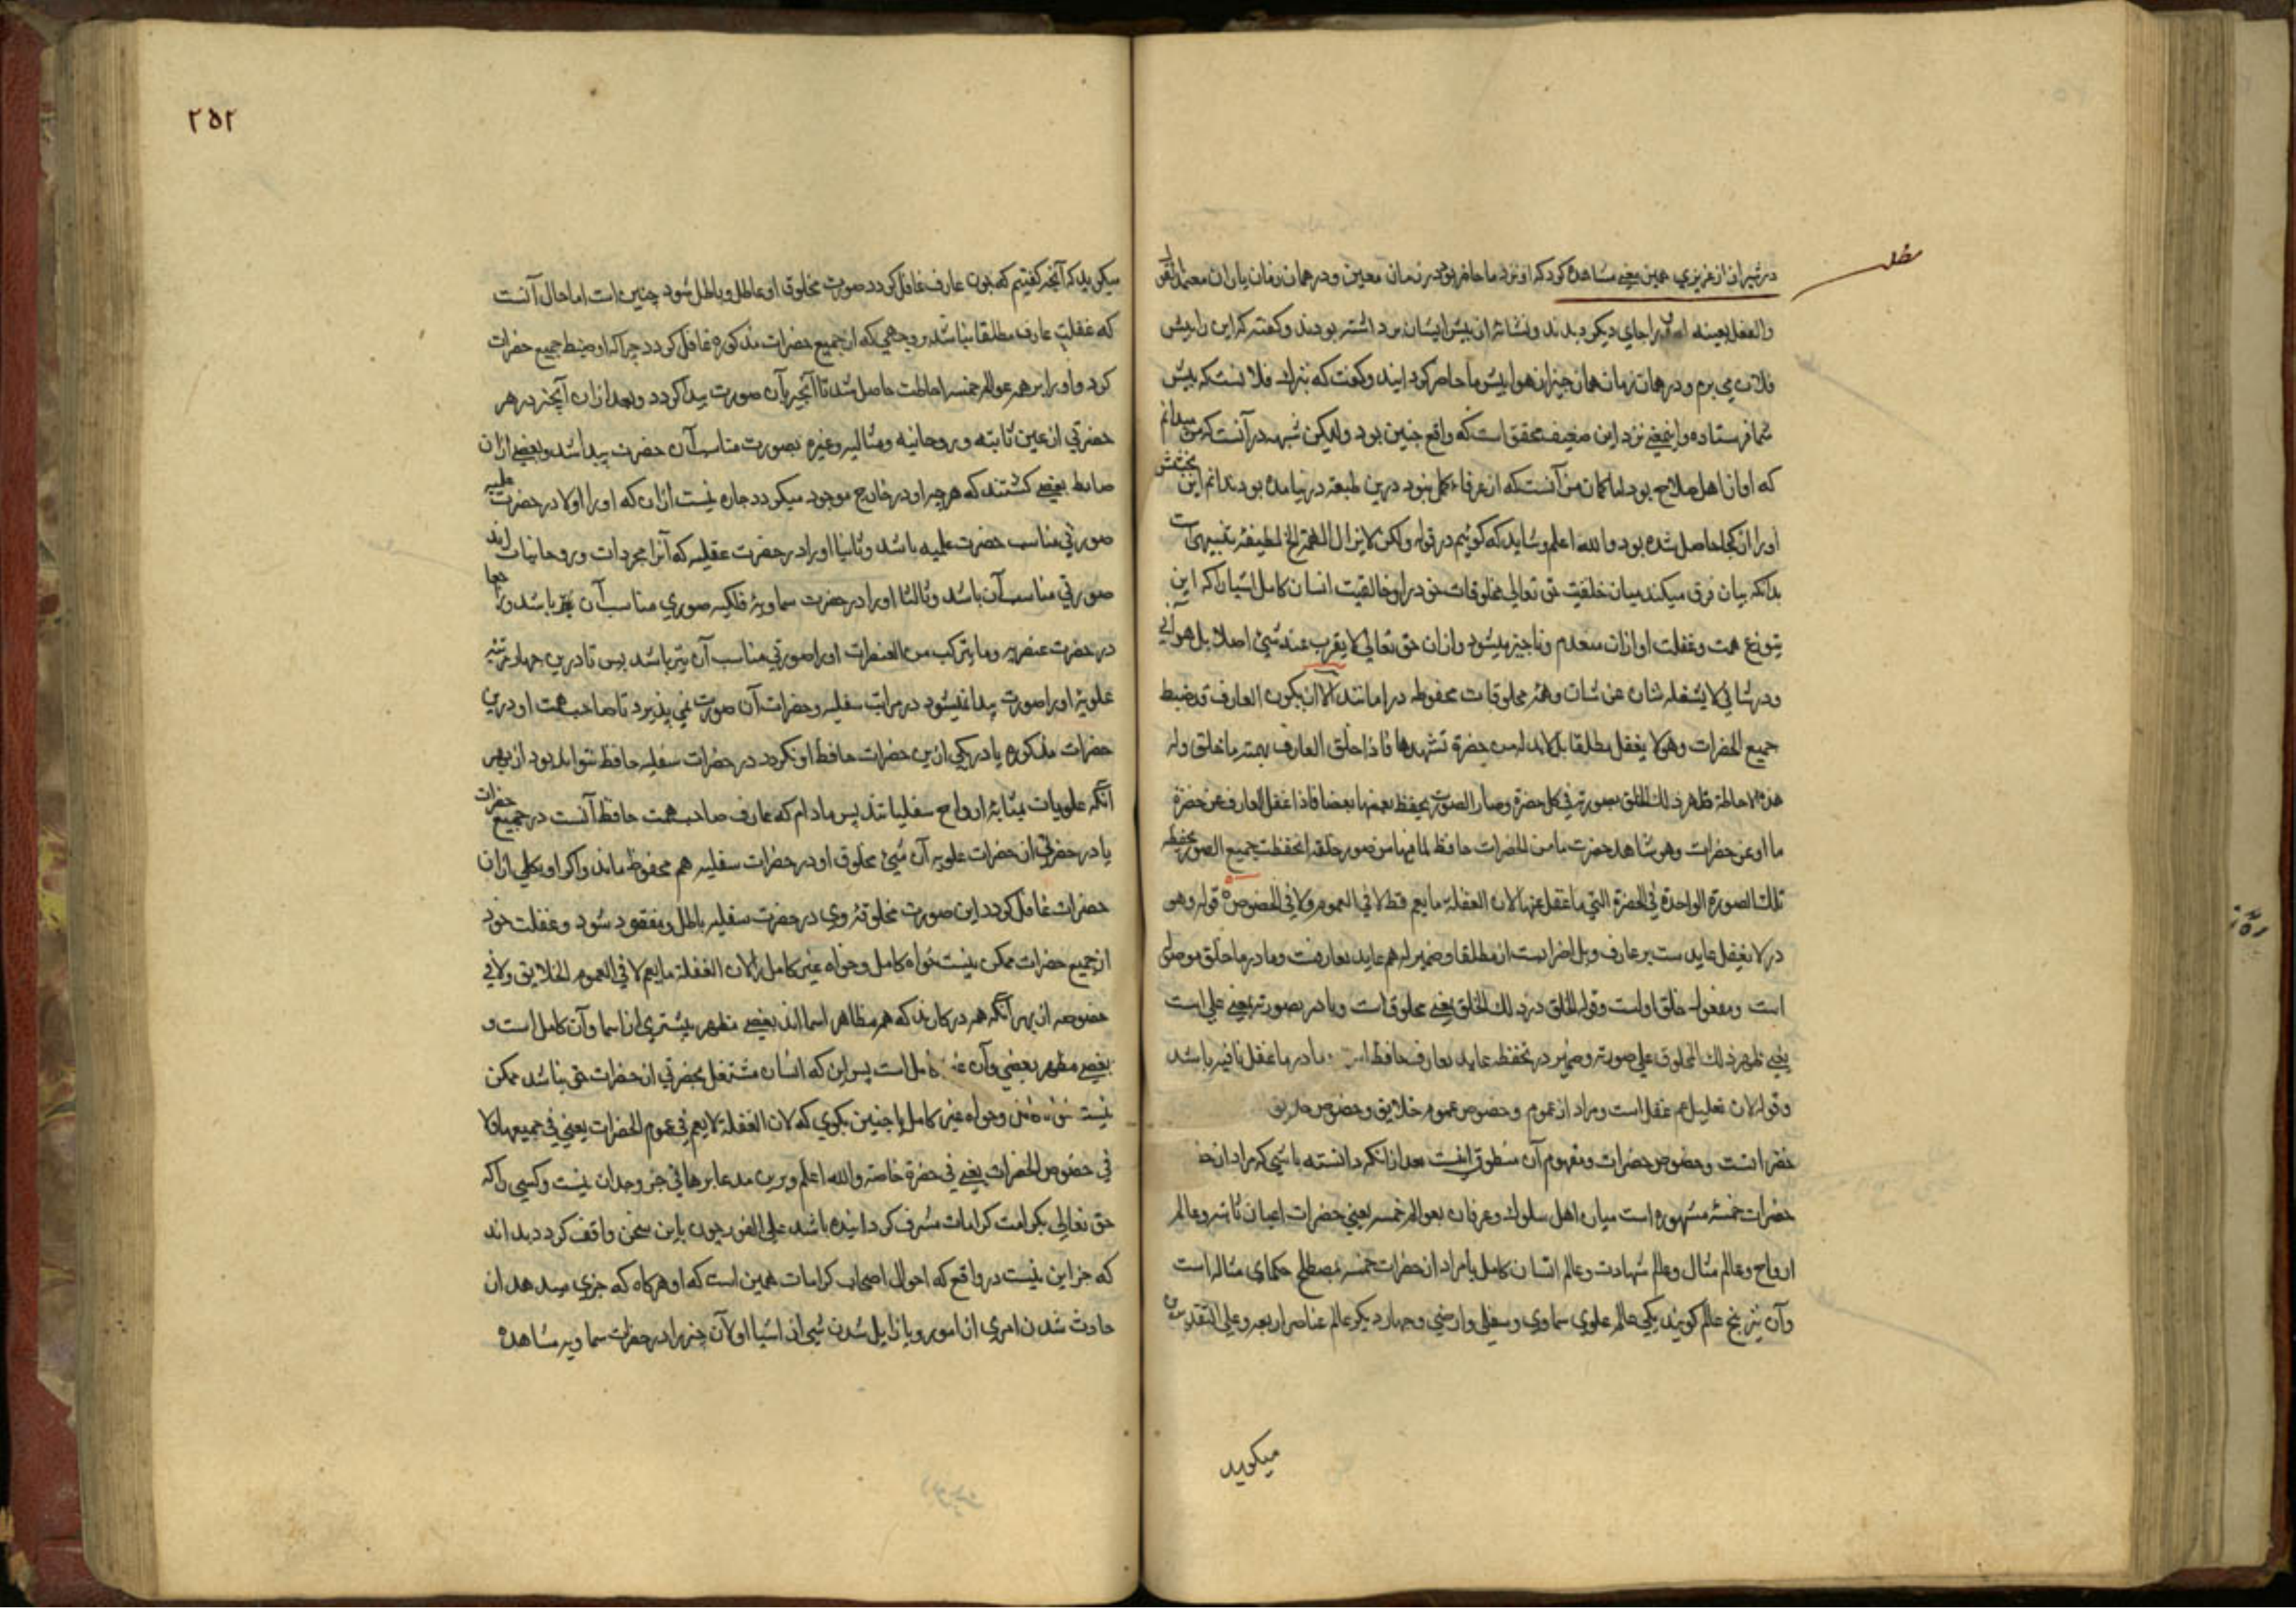 مطلب
در شیراز از عزیزی همین معنی مشاهده کردکه او نزد ما حاضر بود در زمان معین و در همان زمان یاران معتمد القول
والعقل بعینه او را جای دیکر دیدند و نشانها از پیش ایشان برداشته بودند و کفته که این را پیش
فلان می برم و در همان زمان همان چیز از هوا پیش ما حاضر کردانید وکفت که تبرک فلانست که پیش
شما فرستاده و اینمعنی نزد این ضعیف محقق است که واقع چنین بود ولیکن شبهه در آنست که من میدانم
که او از اهل صلاح بود اما کمان من آنست که از عرفاء کمل نبود درین طبقه در نیامده بود ندانم این بخشش
او را از کجا حاصل شده بود والله اعلم وشاید که کوئیم در قوله ولکن لایزال الهمة الخ لطیفة تنبیهی است
بدانکه بیان فرق میکند میان خلقیت حق تعالی مخلوقات خود را وخالقیت انسان کامل اشیا را که این
بنوع همت وغفلت او ازان منعدم وناچیز میشود وازان حق تعالی لا یعزب عنه شیئ اصلا بل هو آنی
ودر شانی لا یشغله شان عن شان وهمه مخلوقات محفوظه در امانند الا ان یکون العارف قد ضبط
جمیع الحضرات وهو لا یغفل مطلقا بل لابد له من حضرة تشهدها فاذا خلق العارف بهمته ما خلق وله
هذه الاحاطة ظهر ذلك الخلق بصورته فی کل حضرة وصار الصور یحفظ بعضها بعضا فاذا غفل العارف عن حضرة
ما او عن حضرات وهو شاهد حضرت ما من الحضرات حافظ لما فیها من صور خلقه انحفظت جمیع الصور بحفظه
تلك الصورة الواحدة فی الحضرة التی ما غفل عنها لان الغفلة ما یعم قط لا فی العموم ولا فی الخصوص قوله وهو
در لا یغفل عاید ست بر عارف وبل اضرابست از مطلقا وضمیر له هم عاید بعارفست وما در ما خلق موصول
است ومفعول خلق اولست وقوله الخلق در ذلك الخلق یعنی مخلوقات وبا در بصورته بمعنی علی است
یعنی ظهر ذلك المخلوق علی صورته وضمیر در بحفظه عاید بعارف حافظ است وما در ما غفل نافیه باشد
وقوله لان تعلیل عدم غفل است ومراد از عموم وخصوص عموم خلایق وخصوص خلایق
حضراتست وخصوص حضرات ومفهوم آن منطوق اینست بعد ازانکه دانسته باشی که مراد از
حضرات خمسة مشهوره است میان اهل سلوك وعرفان بعوالم خمسه یعنی حضرات اعیان ثابته وعالم
ارواح وعالم مثال وعالم شهادت وعالم انسان کامل یا مراد از حضرات خمسه بمصطلح حکمای متاله است
وآن نیز پنج عالم کویند یکی عالم علوی سماوی وسفلی وارضی وچهار دیکر عالم عناصر اربعه وعلی التقدیرین
میکوید
۲۵۲
میکوید که آنچه کفتیم که چون عارف غافل کردد صورت مخلوق او عاطل وباطل شود چنین است اما حال آنست
که غفلت عارف مطلقا نباشد بر وجهی که از جمیع حضرات مذکوره غافل کردد چرا که او ضبط جمیع حضرات
کرد و او را بر همه عوالم خمسه احاطت حاصل شد تا آنچیز بآن صورت پیدا کردد وبعد ازان آنچیز در هر
حضرتی از عین ثابته وروحانیه ومثالیه وغیره بصورت مناسب آن حضرت پیدا شد وبعضی ازان
ضابط بعضی کشتند که هر چه او در خارج موجود میکردد چاره نیست ازان که او را اولا در حضرت علمیه
صورتی مناسب حضرت علمیه باشد وثانیا او را در حضرت عقلیه که آنرا مجردات وروحانیات اند
صورتی مناسب آن باشد وثالثا او را در حضرت سماویه فلکیه صوری مناسب آن نیز باشد ورابعا
در حضرت عنصریه وما یترکب من العنصرات او را صورتی مناسب آن نیز باشد پس تا درین چهار مرتبه
علویه او را صورت پیدا نمیشود در مراتب سفلیه وحضرات آن صورت نمی پذیرد تا صاحب همت او درین
حضرات مذکوره یا در یکی ازین حضرات حافظ او نکردد در حضرات سفلیه حافظ نتواند بود از بهر
آنکه علویات بمثابه ارواح سفلیاتند پس مادام که عارف صاحب همت حافظ آنست در جمیع حضرات
یا در حضرتی از حضرات علویه آن شیئ مخلوق او در حضرات سفلیه هم محفوظ ماند واکر او بکلی ازان
حضرات غافل کردد این صورت مخلوقه وی در حضرت سفلیه باطل ومفقود شود وغفلت خود
از جمیع حضرات ممکن نیست خواه کامل وخواه غیر کامل را لان الغفلة ما یعم لا فی العموم الخلایق ولا فی
خصوصه از بهر آنکه همه در کارند که هم مظاهر اسما اند بعضی مظهر بیشتری از اسما وآن کامل است و
بعضی مظهر بعضی وآن غیر کامل است پس این که انسان مشتغل بحضرتی از حضرات حق نباشد ممکن
نیست خواه کامل وخواه غیر کامل یا چنین بکوی که لان الغفلة لا یعم فی عموم الحضرات یعنی فی جمیعها ولا
فی خصوص الحضرات یعنی فی حضرة خاصة والله اعلم وبرین مدعا برهانی جز وجدان نیست وکسی را که
حق تعالی بکرامت کرامات مشرف کردانیده باشد علی الفور چون باین سخن واقف کردد بداند
که جز این نیست در واقع که احوال اصحاب کرامات همین است که او هرکاه که خبری میدهد از
حادث شدن امری از امور ویا زایل شدن شیئ از اشیا اولا آن چیز را در حضرت سماویه مشاهده